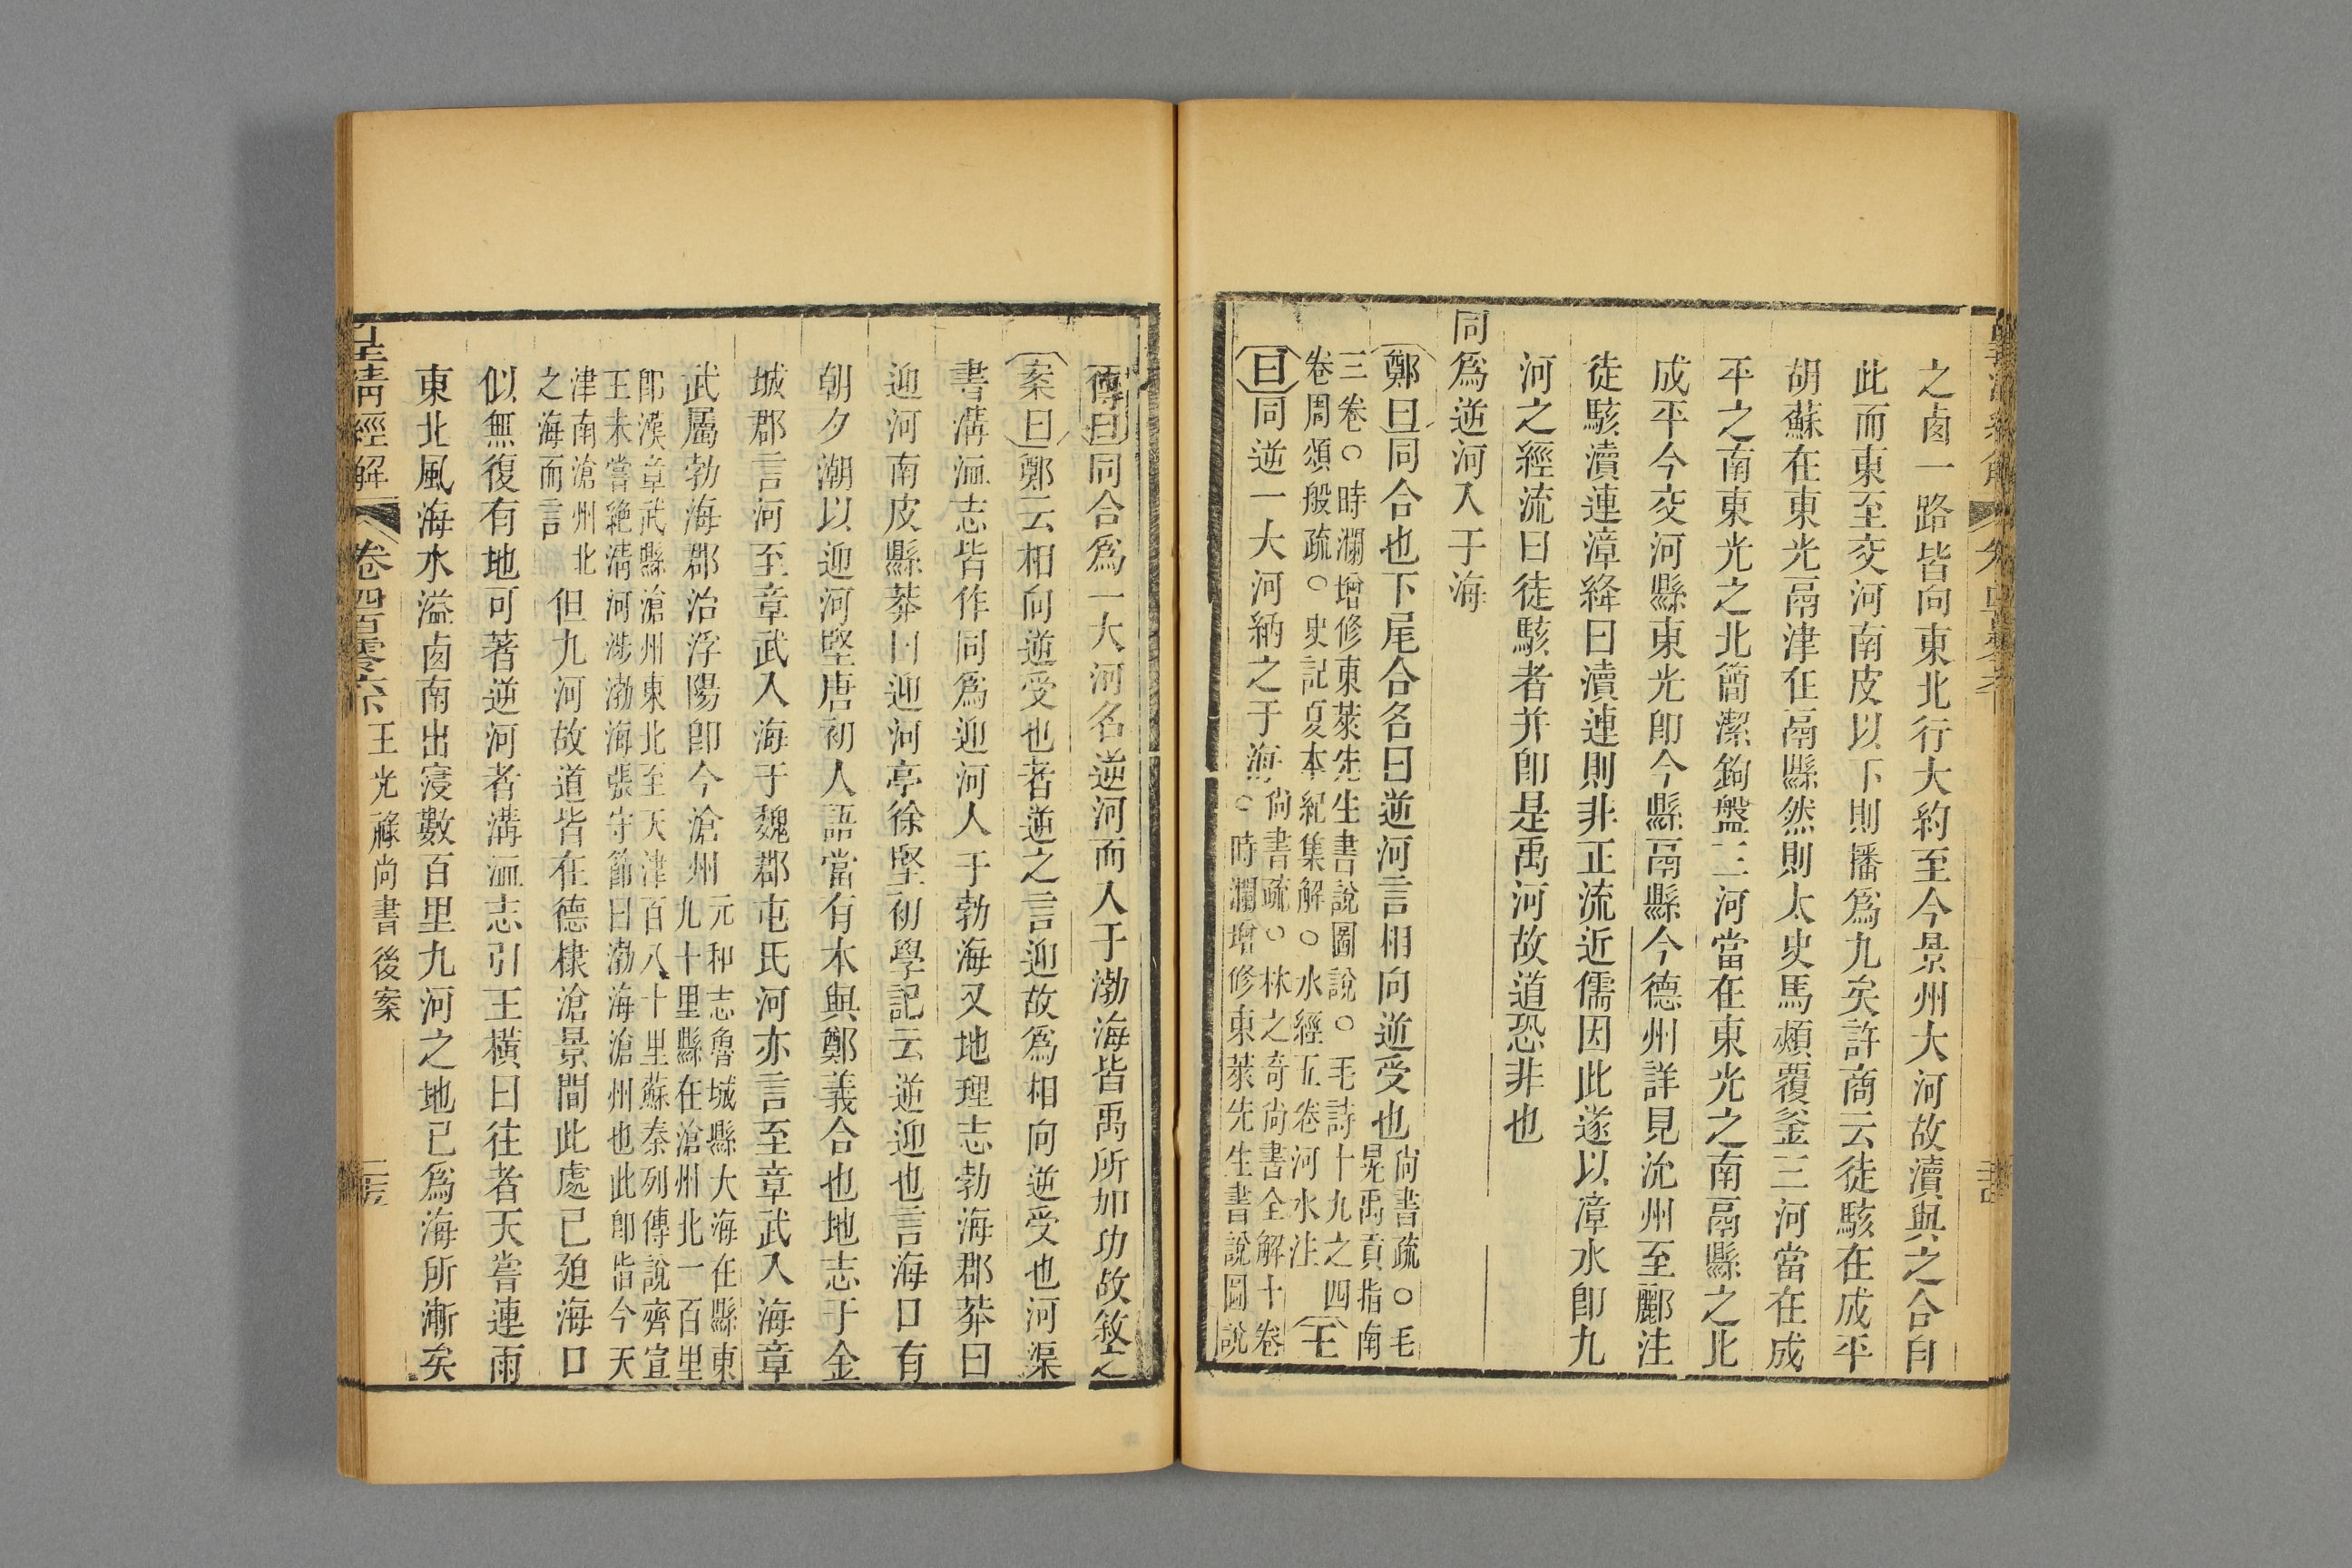 之鹵一路皆向東北行大約至今景州大河故瀆與之合自
此而東至交河南皮以下則播爲九矣許商云徒駭在成平
胡蘇在東光鬲津在鬲縣然則太史馬頰覆釜三河當在成
平之南東光之北簡潔鉤盤三河當在東光之南鬲縣之北
成平今交河縣東光卽今縣鬲縣今德州詳見沇州至酈注
徒駭瀆連漳絳曰瀆連則非正流近儒因此遂以漳水卽九
河之經流曰徒駭者并卽是禹河故道恐非也
同爲逆河入于海
鄭曰同合也下尾合名曰逆河言相向逆受也尙書疏○毛晃禹貢指南
三卷○時瀾增修東萊先生書說圖說○毛詩十九之四
卷周頌般疏○史記夏本紀集解○水經五卷河水注王
曰同逆一大河納之于海尙書疏○林之奇尙書全解十卷○時瀾增修東萊先生書說圖說
傳曰同合爲一大河名逆河而入于渤海皆禹所加功故敘之
案曰鄭云相向逆受也者逆之言迎故爲相向逆受也河渠
書溝洫志皆作同爲迎河入于勃海又地理志勃海郡莽曰
迎河南皮縣莽曰迎河亭徐堅初學記云逆迎也言海口有
朝夕潮以迎河堅唐初人語當有本與鄭義合也地志于金
城郡言河至章武入海于魏郡屯氏河亦言至章武入海章
武屬勃海郡治浮陽卽今滄州元和志魯城縣大海在縣東九十里縣在滄州北一百里
卽漢章武縣滄州東北至天津百八十里蘇秦列傳說齊宣
王未嘗絶淸河涉渤海張守節曰渤海滄州也此卽皆今天
津南滄州北之海而言但九河故道皆在德棣滄景間此處已廹海口
似無復有地可著逆河者溝洫志引王橫曰往者天嘗連雨
東北風海水溢鹵南出寖數百里九河之地已爲海所漸矣
皇淸經解 卷四百零六 王光祿尙書後案